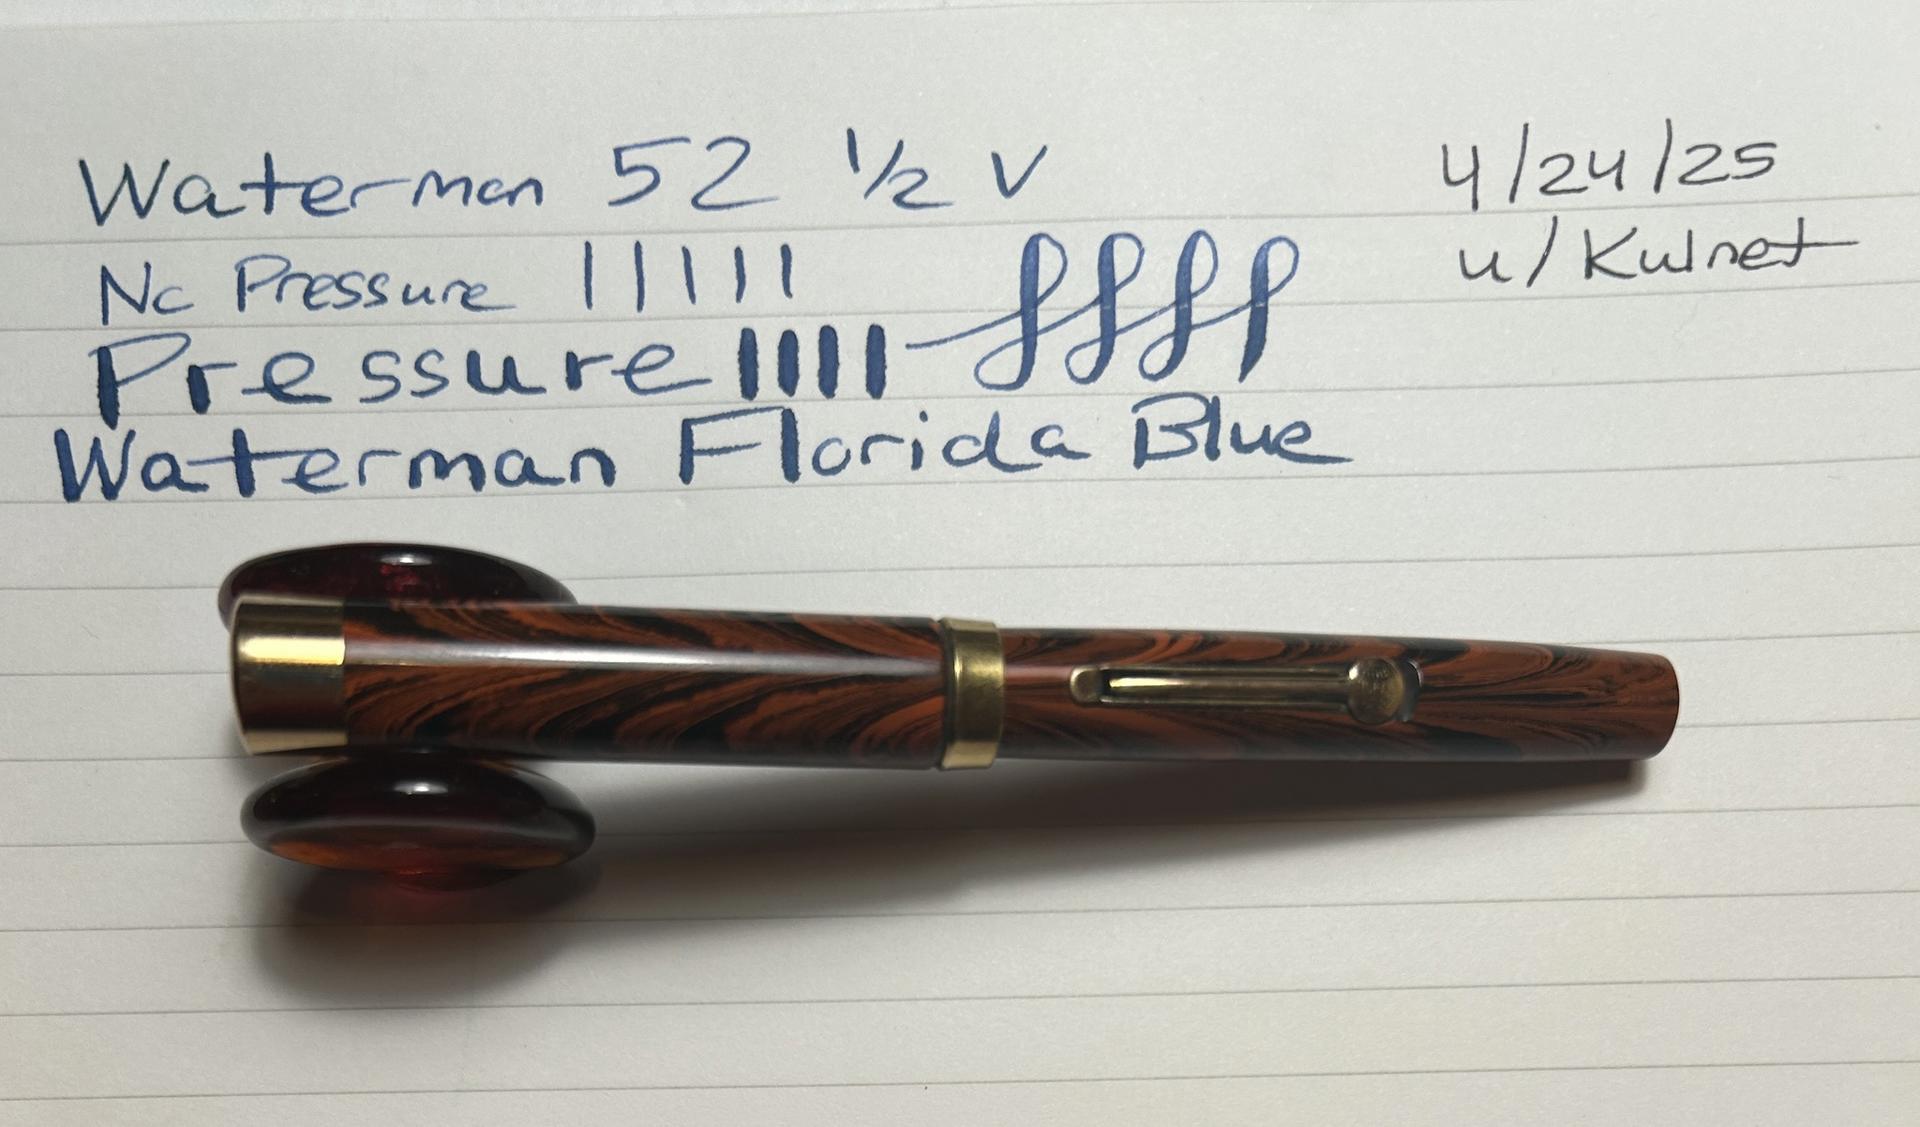 Waterman 52 1/2 V
4/24/25
u/Kulnet
No Pressure
Pressure
Waterman Florida Blue